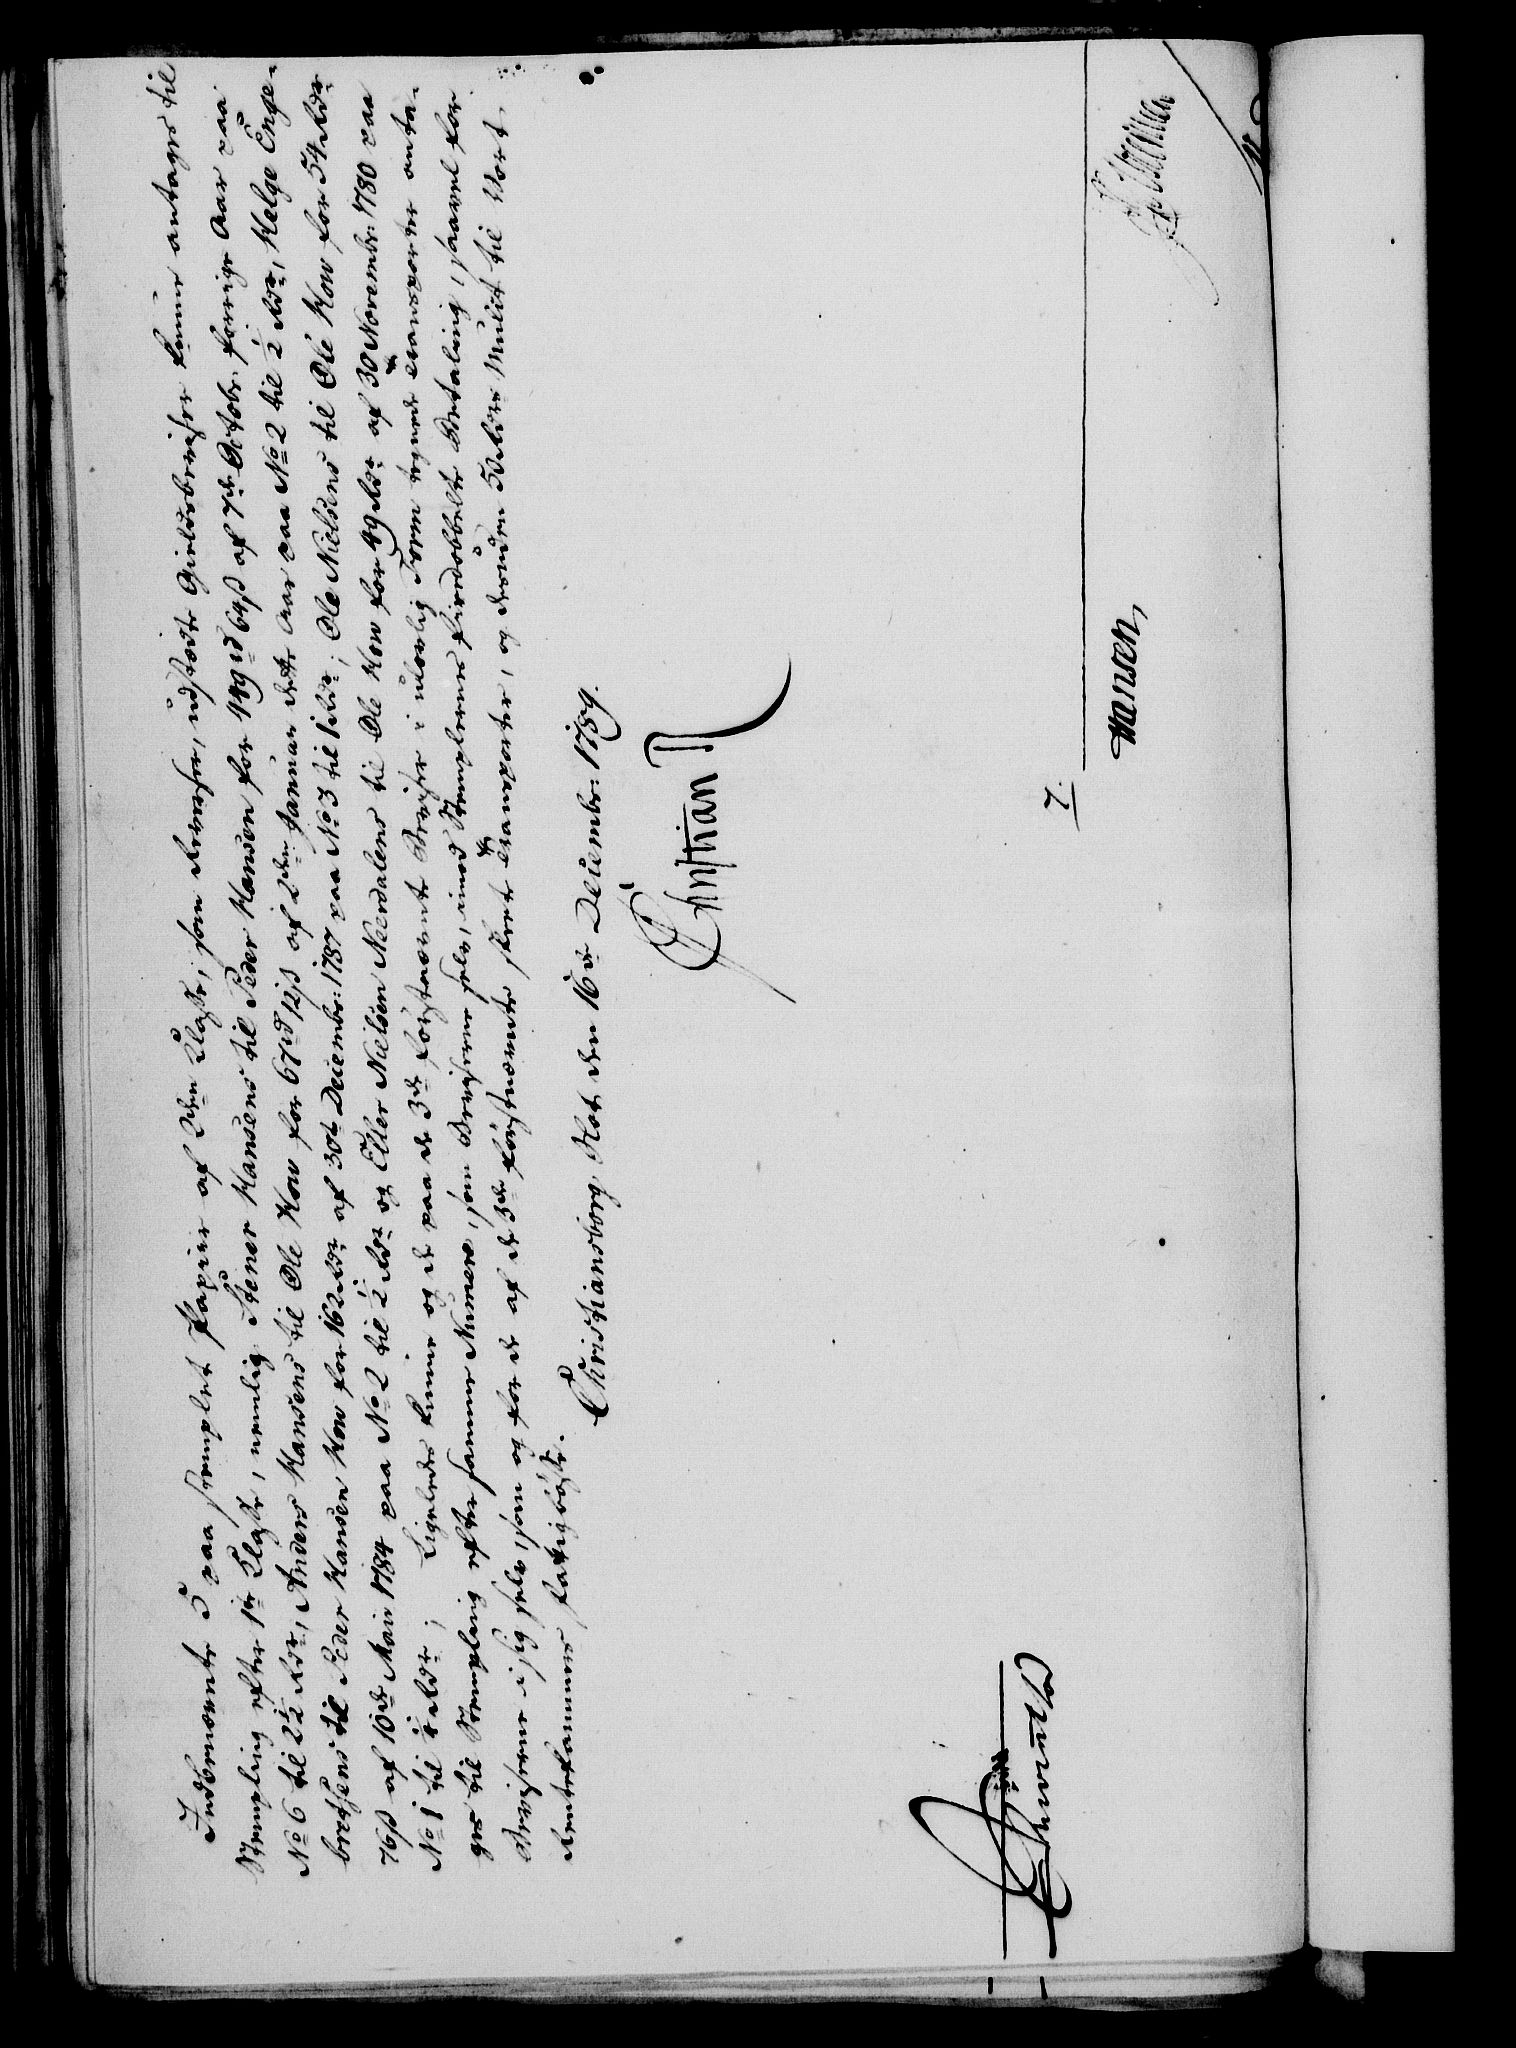 Indbemeldte 5 paa stemplet Papiir af 2den Classe, som Reverser, udstædte Gieldsbeviser kunne antages til
Stempling efter 1ste Classe, nemlig Stener Hansens til Peder Hansen for 149 rd 64 ß af 7de Octobr: forrige Aar paa
No 6 til 2½ Rdr, Anders Hansens til Ole How for 67 rd 12 ß af 2den Januar dette Aar paa No 2 til ½ Rdr, Helge Enge-
bretsens til Peder Hansen How for 162 Rdr af 30te Decembr: 1787 paa No 3 til 1 Rdr; Ole Nielsens til Ole How for 54 Rdr
76 ß af 10de Maii 1784 paa No 2 til ½ Rdr og Eller Nielsen Neerdalens til Ole How for 49 Rdr af 30 Novembr: 1780 paa
No 1 til Rdr; Ligeledes kunne og de paa de 3de førstnævnte Beviser i ulovlig Form tegnede Transporter anta-
ges til Stempling efter samme Numere, som Beviserne selv, imod Stemplernes fiirdobbelte Betaling, saavel for
Beviserne i sig selv, som og for de af de 3de førstnævnte skeete Transporter, og desuden 50 Rdrs Mulct til Vort
Rentekammers Fatigbøsse.
Christiansborg Slot den 16de Decembr: 1789.
Christian R
7.
Hansen,